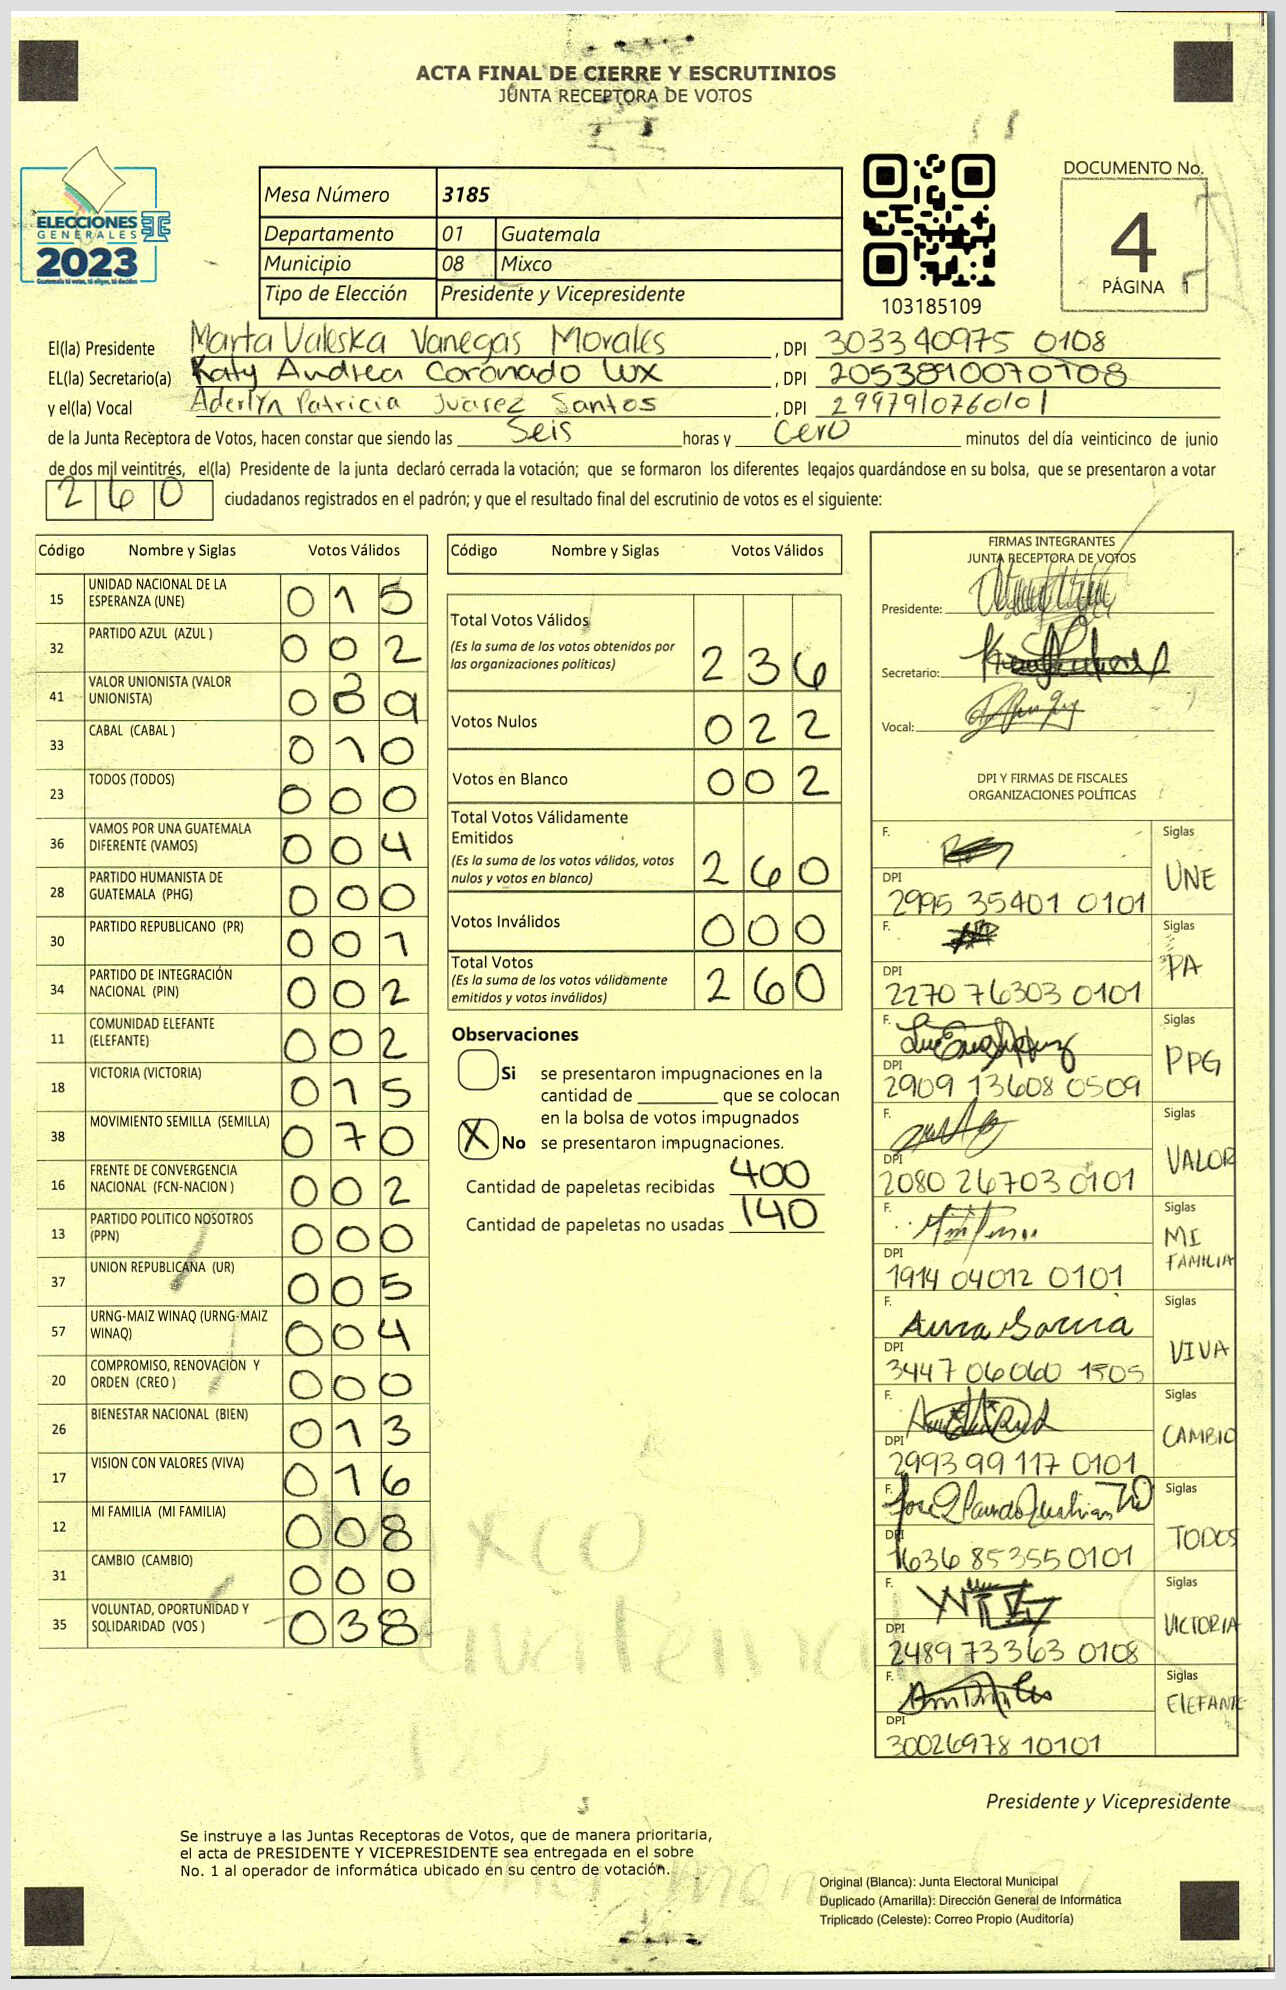 ACTA FINAL DE CIERRE Y ESCRUTINIOS
JUNTA RECEPTORA DE VOTOS
ELECCIONES
GENERALES
2023
Guatemala tú votas, tú eliges, tú decides
Mesa Número 3185
Departamento 01 Guatemala
Municipio 08 Mixco
Tipo de Elección Presidente y Vicepresidente
103185109
DOCUMENTO No.
4
PÁGINA 1
El(la) Presidente Marta Valeska Vanegas Morales, DPI 303340975 0108
EL(la) Secretario(a) Katy Andrea Coronado Lux, DPI 2053890070108
y el(la) Vocal Aderlyn Patricia Juarez Santos, DPI 2997910760101
de la Junta Receptora de Votos, hacen constar que siendo las Seis horas y Cero minutos del día veinticinco de junio
de dos mil veintitrés, el(la) Presidente de la junta declaró cerrada la votación; que se formaron los diferentes legajos guardándose en su bolsa, que se presentaron a votar
260 ciudadanos registrados en el padrón; y que el resultado final del escrutinio de votos es el siguiente:
Código Nombre y Siglas Votos Válidos
15 UNIDAD NACIONAL DE LA ESPERANZA (UNE) 015
32 PARTIDO AZUL (AZUL ) 002
41 VALOR UNIONISTA (VALOR UNIONISTA) 0 9
33 CABAL (CABAL ) 010
23 TODOS (TODOS) 000
36 VAMOS POR UNA GUATEMALA DIFERENTE (VAMOS) 004
28 PARTIDO HUMANISTA DE GUATEMALA (PHG) 000
30 PARTIDO REPUBLICANO (PR) 001
34 PARTIDO DE INTEGRACIÓN NACIONAL (PIN) 002
11 COMUNIDAD ELEFANTE (ELEFANTE) 002
18 VICTORIA (VICTORIA) 015
38 MOVIMIENTO SEMILLA (SEMILLA) 070
16 FRENTE DE CONVERGENCIA NACIONAL (FCN-NACION ) 002
13 PARTIDO POLITICO NOSOTROS (PPN) 000
37 UNION REPUBLICANA (UR) 005
57 URNG-MAIZ WINAQ (URNG-MAIZ WINAQ) 004
20 COMPROMISO, RENOVACIÓN Y ORDEN (CREO ) 000
26 BIENESTAR NACIONAL (BIEN) 013
17 VISION CON VALORES (VIVA) 016
12 MI FAMILIA (MI FAMILIA) 008
31 CAMBIO (CAMBIO) 000
35 VOLUNTAD, OPORTUNIDAD Y SOLIDARIDAD (VOS ) 038
Código Nombre y Siglas Votos Válidos
Total Votos Válidos 236
(Es la suma de los votos obtenidos por
las organizaciones políticas)
Votos Nulos 022
Votos en Blanco 002
Total Votos Válidamente
Emitidos 260
(Es la suma de los votos válidos, votos
nulos y votos en blanco)
Votos Inválidos 000
Total Votos 260
(Es la suma de los votos válidamente
emitidos y votos inválidos)
Observaciones
Si se presentaron impugnaciones en la
cantidad de ________ que se colocan
en la bolsa de votos impugnados
X No se presentaron impugnaciones.
Cantidad de papeletas recibidas 400
Cantidad de papeletas no usadas 140
FIRMAS INTEGRANTES
JUNTA RECEPTORA DE VOTOS
Presidente:
Secretario:
Vocal:
DPI Y FIRMAS DE FISCALES
ORGANIZACIONES POLÍTICAS
F. Siglas UNE
DPI 2995 35401 0101
F. Siglas PA
DPI 2270 76303 0101
F. Siglas PPG
DPI 2909 13608 0509
F. Siglas VALOR
DPI 2080 26703 0101
F. Siglas MI FAMILIA
DPI 1914 04012 0101
F. Siglas VIVA
DPI 3447 06060 1505
F. Siglas CAMBIO
DPI 2993 99 117 0101
F. Siglas TODOS
DPI 1636 85355 0101
F. Siglas VICTORIA
DPI 2489 73363 0108
F. Siglas ElEFANTE
DPI 30026978 10101
Mixco
Guatemala
Presidente y Vicepresidente
Se instruye a las Juntas Receptoras de Votos, que de manera prioritaria,
el acta de PRESIDENTE Y VICEPRESIDENTE sea entregada en el sobre
No. 1 al operador de informática ubicado en su centro de votación.
Original (Blanca): Junta Electoral Municipal
Duplicado (Amarilla): Dirección General de Informática
Triplicado (Celeste): Correo Propio (Auditoría)